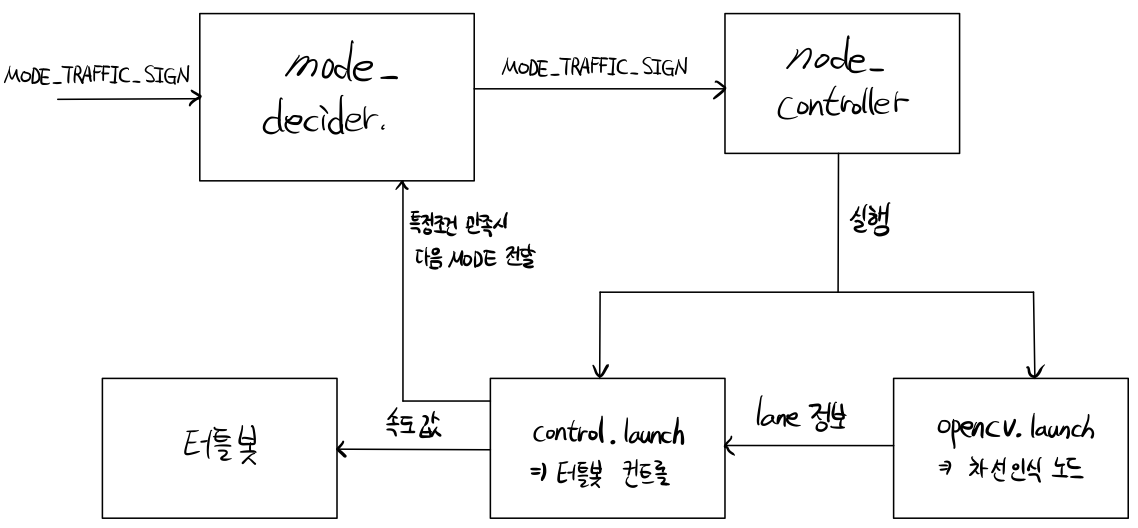 MODE_TRAFFIC_SIGN
mode_
decider.
MODE_TRAFFIC_SIGN
node_
controller
특정조건 만족시
다음 MODE 전달
실행
터틀봇
속도값
control.launch
⇒ 터틀봇 컨트롤
lane 정보
opencv.launch
⇒ 차선인식 노드